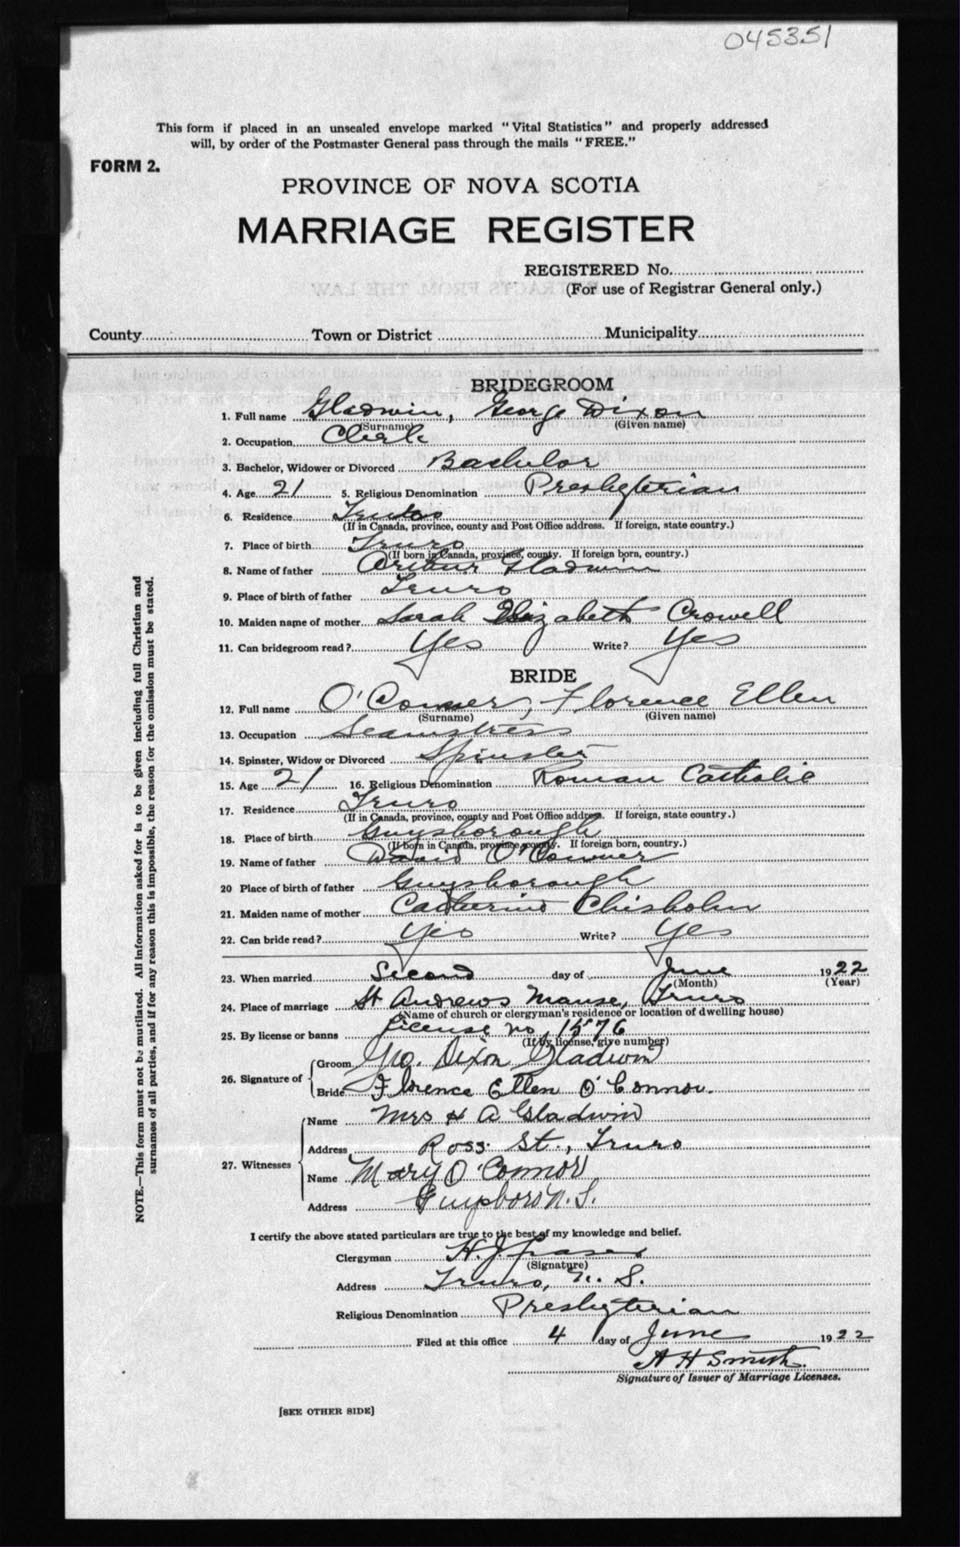 045351
This form if placed in an unsealed envelope marked "Vital Statistics" and properly addressed
will, by order of the Postmaster General pass through the mails "FREE."
FORM 2.
PROVINCE OF NOVA SCOTIA
MARRIAGE REGISTER
REGISTERED No.
(For use of Registrar General only.)
County Town or District Municipality
BRIDEGROOM
1. Full name Gladwin, George Dixon
(Surname) (Given name)
2. Occupation Clerk
3. Bachelor, Widower or Divorced Bachelor
4. Age 21 5. Religious Denomination Presbyterian
6. Residence Truro
(If in Canada, province, county and Post Office address. If foreign, state country.)
7. Place of birth Truro
(If born in Canada, province, county. If foreign born, country.)
8. Name of father Arthur Gladwin
9. Place of birth of father Truro
10. Maiden name of mother Sarah Elizabeth Crowell
11. Can bridegroom read? Yes Write? Yes
BRIDE
12. Full name O'Conner, Florence Ellen
(Surname) (Given name)
13. Occupation Seamstress
14. Spinster, Widow or Divorced Spinster
15. Age 21 16. Religious Denomination Roman Catholic
17. Residence Truro
(If in Canada, province, county and Post Office address. If foreign, state country.)
18. Place of birth Guysborough
(If born in Canada, province, county. If foreign born, country.)
19. Name of father David O'Conner
20 Place of birth of father Guysborough
21. Maiden name of mother Catherine Chisholm
22. Can bride read? Yes Write? Yes
23. When married Second day of June 1922
(Month) (Year)
24. Place of marriage St Andrews Manse, Truro
(Name of church or clergyman's residence or location of dwelling house)
25. By license or banns License no, 1576
(If by license, give number)
26. Signature of Groom Geo. Dixon Gladwin
Bride Florence Ellen O'Connor.
27. Witnesses
Name Mrs H A Gladwin
Address Ross St., Truro
Name Mary O'Connor
Address Guysboro N. S.
I certify the above stated particulars are true to the best of my knowledge and belief.
Clergyman H. J. Fraser
(Signature)
Address Truro, N. S.
Religious Denomination Presbyterian
Filed at this office 4 day of June 1922
A H Smith
Signature of Issuer of Marriage Licenses.
[SEE OTHER SIDE]
NOTE.—This form must not be mutilated. All information asked for is to be given including full Christian and
surnames of all parties, and if for any reason this is impossible, the reason for the omission must be stated.